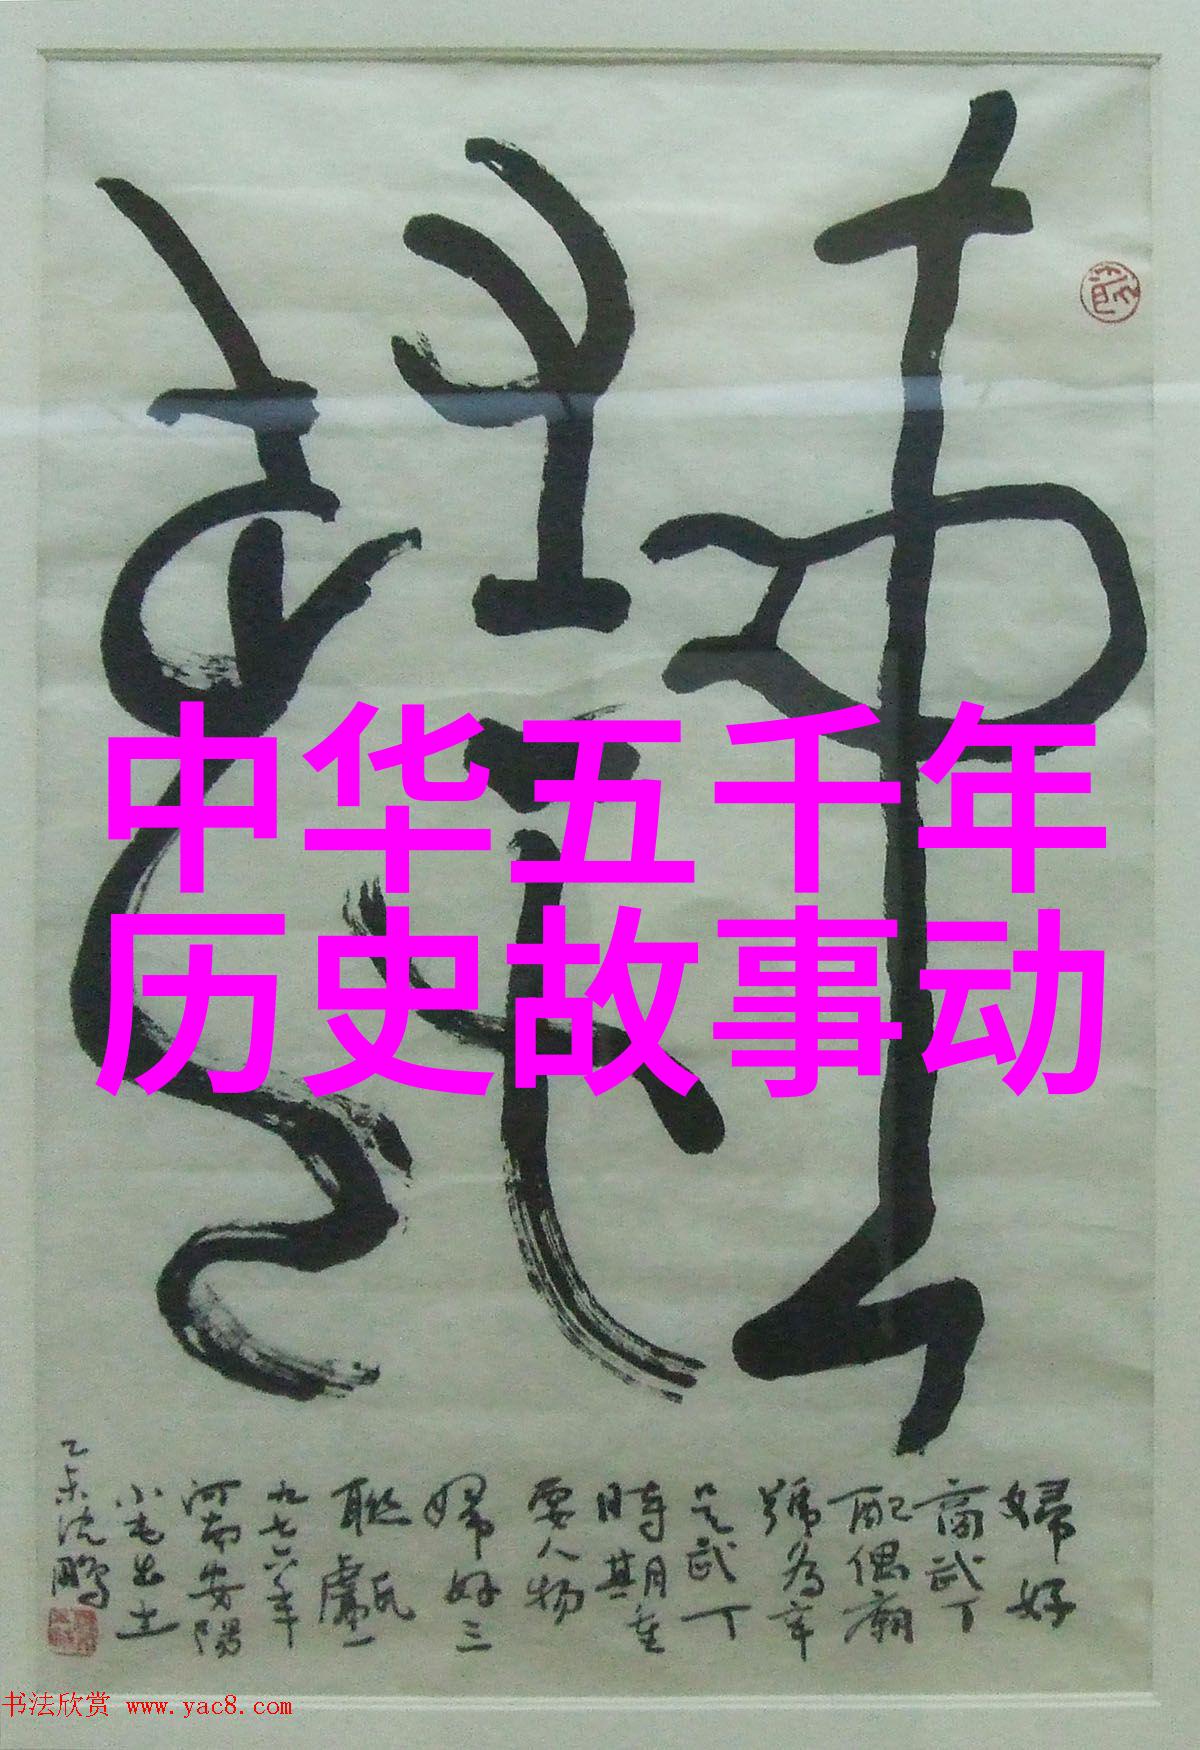 中华五千年
历史故事动
婦好
商武丁
配偶廟
號为辛
是武丁
時期重
要人物
婦好三
聯甗一
九七六年
河南安陽
小屯出土
乙未沈鹏
书法欣赏 www.yac8.com